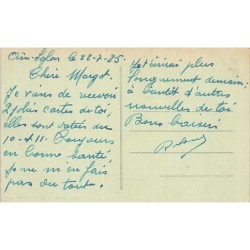 Aïn-Sefra le 22-7-25
Chère Margot.
Je viens de recevoir
2 jolies cartes de toi,
elles sont datées du
10 et 11. Toujours
en bonne santé,
je ne m'en fais
pas du tout.
Je t'écrirai plus
longuement demain;
à bientôt d'autres
nouvelles de toi
Bons baisers